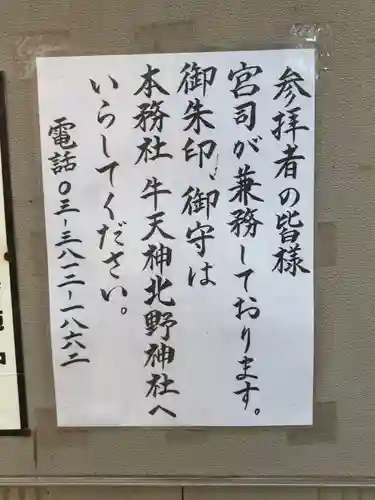 参拝者の皆様
宮司が兼務しております。
御朱印、御守は
本務社 牛天神北野神社へ
いらしてください。
電話〇三ー三八一二ー一八六二